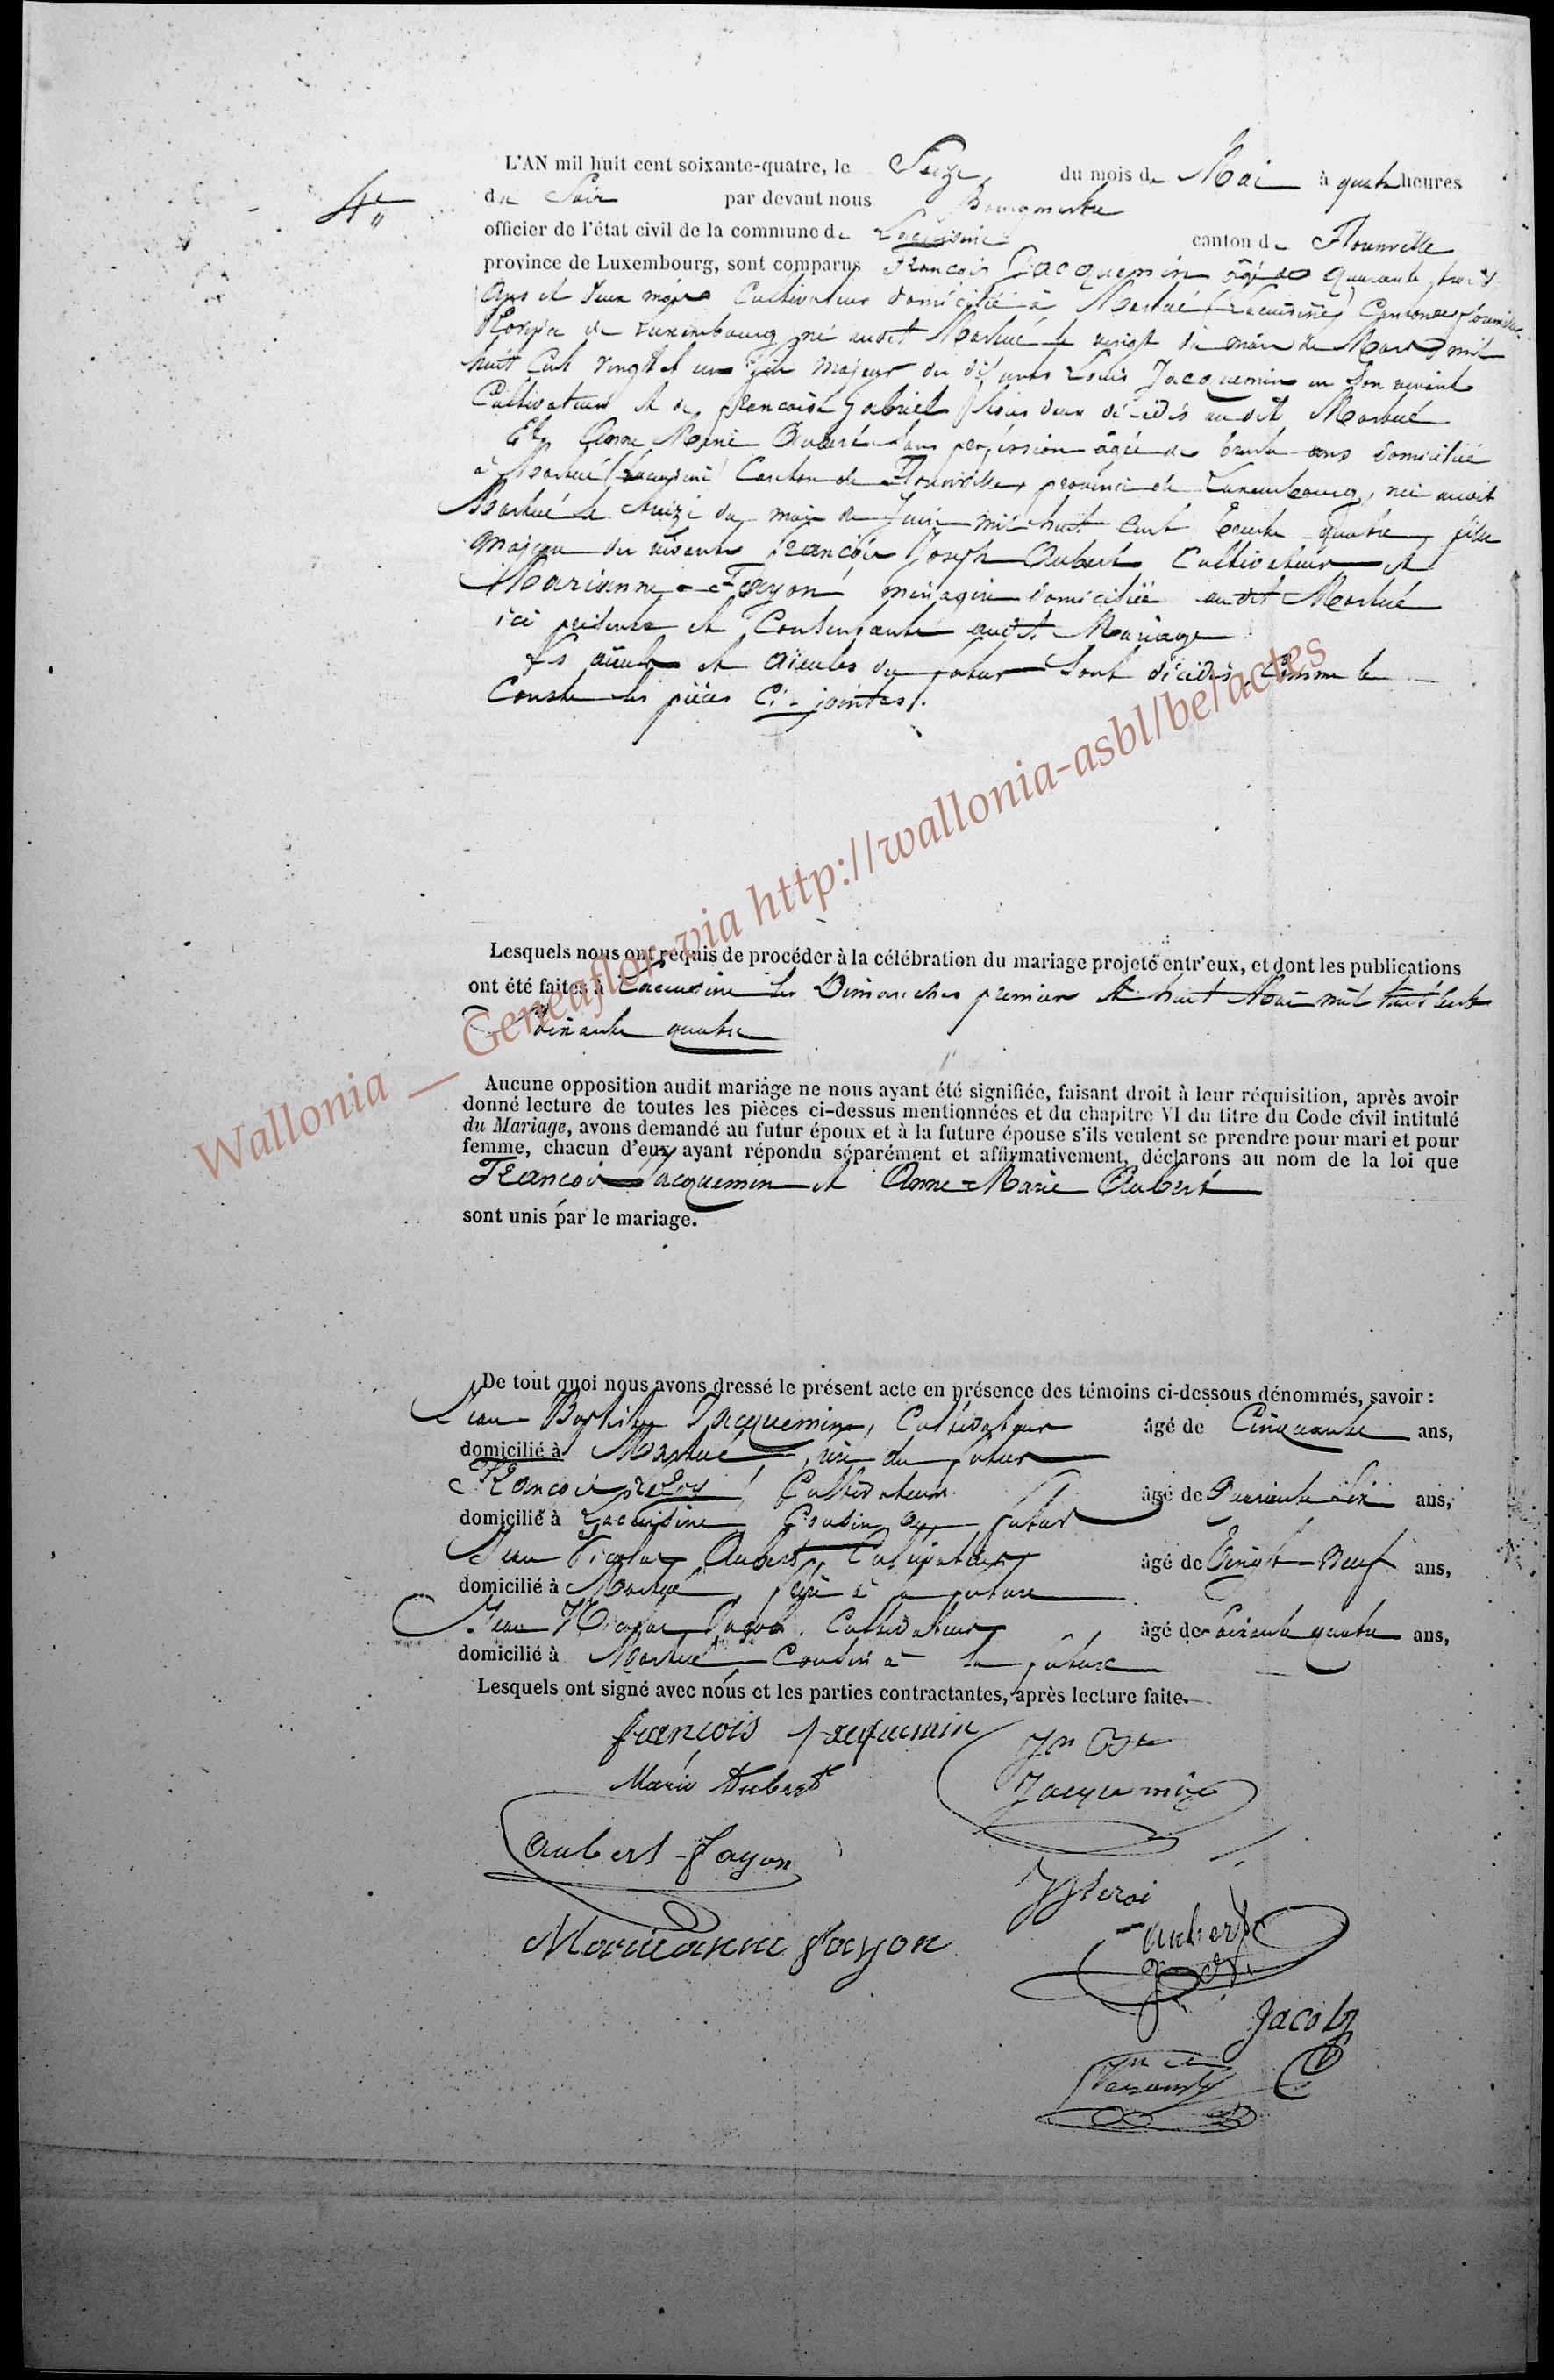 L'AN mil huit cent soixante-quatre, le Seize du mois de Mai à quatre heures
4e
du Soir par devant nous Bourgmestre
officier de l'état civil de la commune de Lacuisine canton de Florenville
province de Luxembourg, sont comparus François Jacquemin âgé de quarante trois
ans et deux mois Cultivateur domicilié à Martué (Lacuisine) Canton de Florenville
de Luxembourg né audit Martué le vingt du mois de Mars mil
huit Cent vingt et un fils majeur des défunts Louis Jacquemin en Son vivant
Cultivateur et de françoise Gabriel tous deux décédés audit Martué
Et Anne Marie Aubert Sans profession âgée de trente ans domiciliée
à Martué (Lacuisine) Canton de Florenville, province de Luxembourg, née audit
Martué le du mois de Juin mil huit Cent trente quatre fille
majeure des vivants françois Joseph Aubert Cultivateur et
Marianne Fayon ménagère domiciliés audit Martué
ici présents et Consentants audit Mariage
Les aïeuls et aïeules du futur Sont décédés Comme le
Constate les pièces Ci-jointes.
Lesquels nous ont requis de procéder à la célébration du mariage projeté entr'eux, et dont les publications
ont été faites à Lacuisine les Dimanches premier et huit Mai mil huit Cent
Soixante quatre
Aucune opposition audit mariage ne nous ayant été signifiée, faisant droit à leur réquisition, après avoir
donné lecture de toutes les pièces ci-dessus mentionnées et du chapitre VI du titre du Code civil intitulé
du Mariage, avons demandé au futur époux et à la future épouse s'ils veulent se prendre pour mari et pour
femme, chacun d'eux ayant répondu séparément et affirmativement, déclarons au nom de la loi que
François Jacquemin et Anne-Marie Aubert
sont unis par le mariage.
De tout quoi nous avons dressé le présent acte en présence des témoins ci-dessous dénommés, savoir :
Jean Baptiste Jacquemin, Cultivateur âgé de Cinquante ans,
domicilié à Martué, du futur
François Cultivateur âgé de Quarante Six ans,
domicilié à Lacuisine Cousin du futur
Jean Nicolas Aubert, Cultivateur âgé de Vingt-Neuf ans,
domicilié à Martué, frère à la future
Jean Nicolas Jacob, Cultivateur âgé de Soixante quatre ans,
domicilié à Martué Cousin à la future
Lesquels ont signé avec nous et les parties contractantes, après lecture faite.
françois jacquemin
Jn Bte
Marie Aubert
Jacquemin
Aubert-fayon
Marieanne fayon
Aubert
Jacob
Wallonia _ Geneaflor via http://wallonia-asbl/be/actes